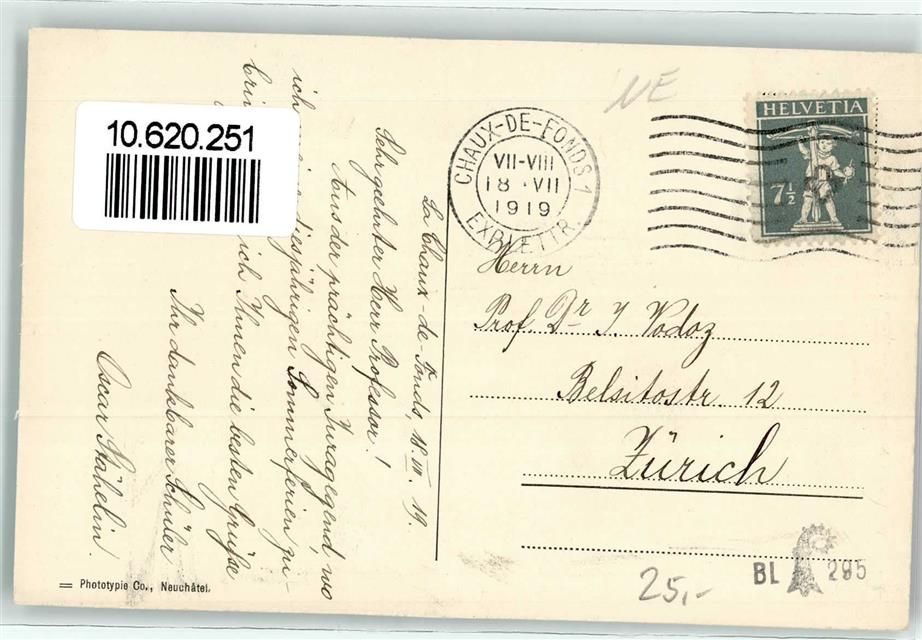 La Chaux-de-Fonds, 18.VII.19.
Sehr geehrter Herr Professor!
Aus der prächtigen Juragegend, wo
ich diesjährigen Sommerferien zu-
ich Ihnen die besten Grüße
Ihr dankbarer Schüler
Oscar Stähelin.
10.620.251
NE
CHAUX-DE-FONDS 1
VII-VIII
18.VII
1919
EXP. LETTR.
HELVETIA
7½
Herrn
Prof. Dr J Vodoz
Belsitostr. 12
Zürich
= Phototypie Co., Neuchâtel.
25,-
BL 295